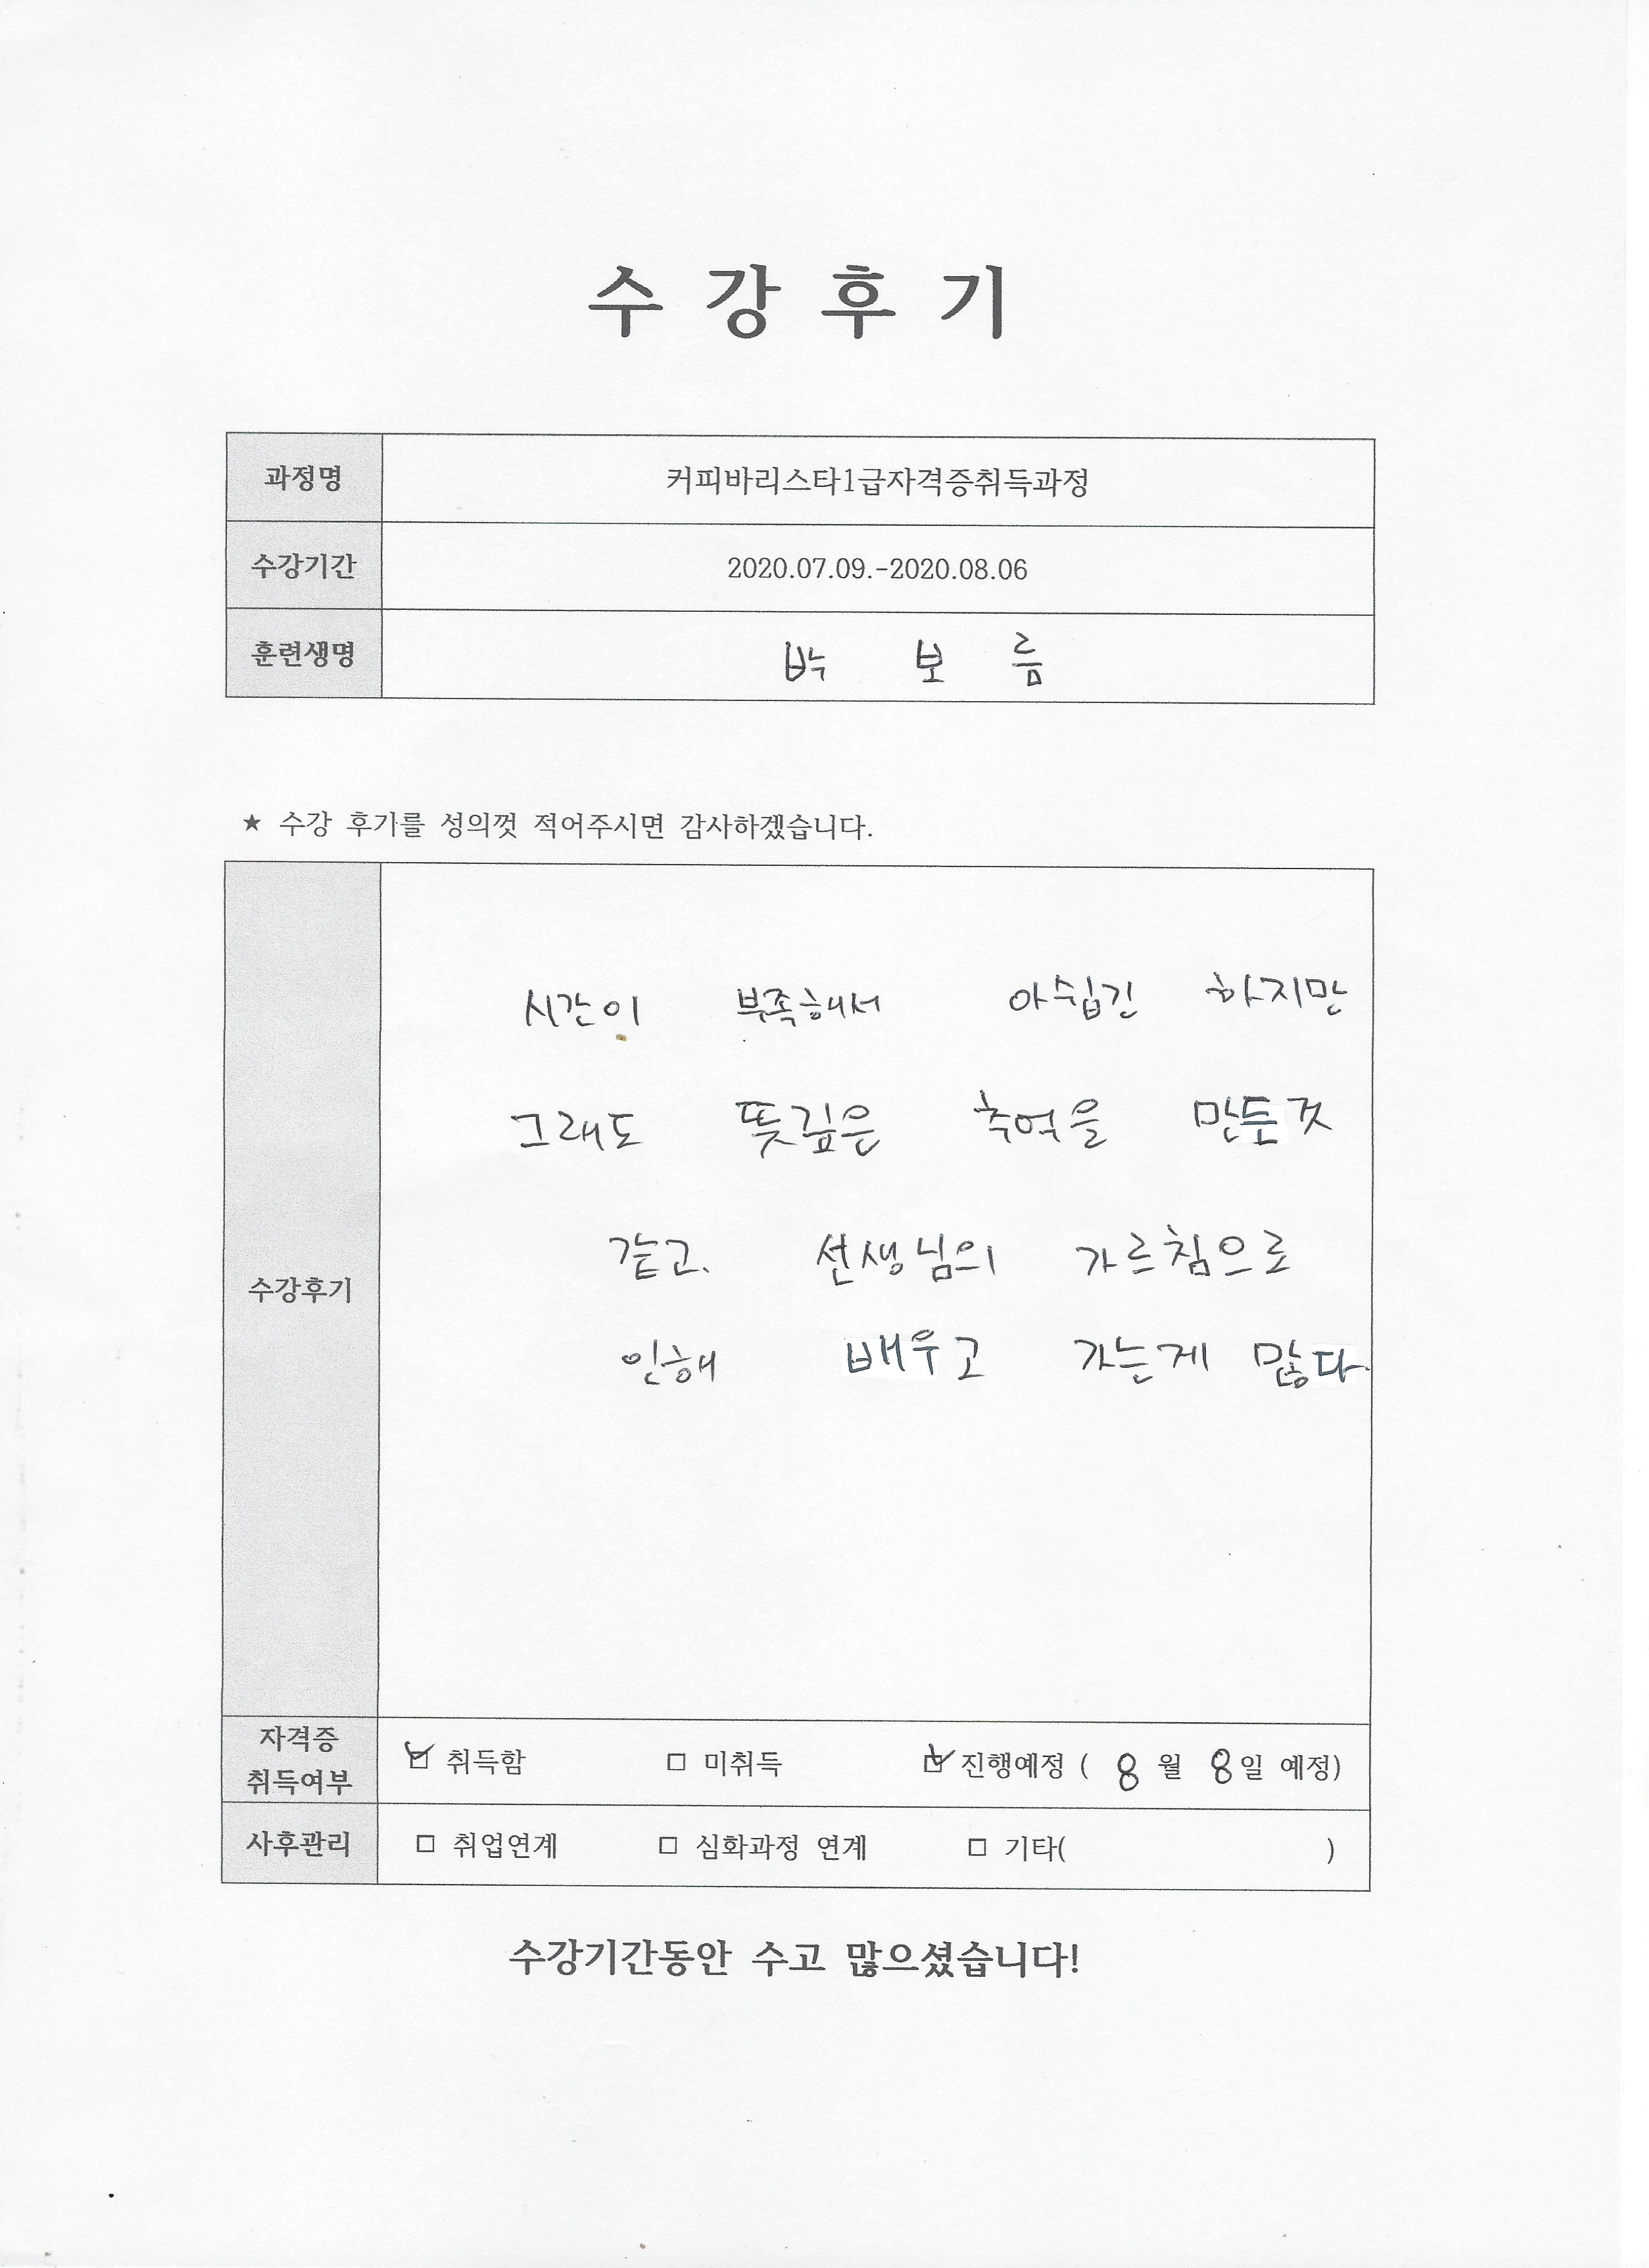 수강후기
과정명 커피바리스타1급자격증취득과정
수강기간 2020.07.09.-2020.08.06
훈련생명 박 보 름
★ 수강 후기를 성의껏 적어주시면 감사하겠습니다.
수강후기
시간이 부족해서 아쉽긴 하지만
그래도 뜻깊은 추억을 만든것
같고. 선생님의 가르침으로
인해 배우고 가는게 많다.
자격증 취득여부
☑ 취득함 □ 미취득 ☑ 진행예정 ( 8 월 8일 예정)
사후관리 □ 취업연계 □ 심화과정 연계 □ 기타( )
수강기간동안 수고 많으셨습니다!